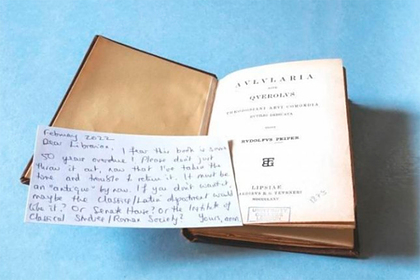 February 2022
Dear Librarian, I fear this book is some
50 years overdue! Please don't just
throw it out, now that I've taken the
time and trouble to return it. It must be
an "antique" by now. If you don't want it,
maybe the Classics/Latin department would
like it? Or Senate House? Or the Institute of
Classical Studies/Roman Society? Yours, anon.
AVLVLARIA
SIVE
QVEROLVS
THEODOSIANI AEVI COMOEDIA
RVTILIO DEDICATA
EDIDIT
RVDOLFVS PEIPER
LIPSIAE
IN AEDIBVS B. G. TEVBNERI
MDCCCLXXV